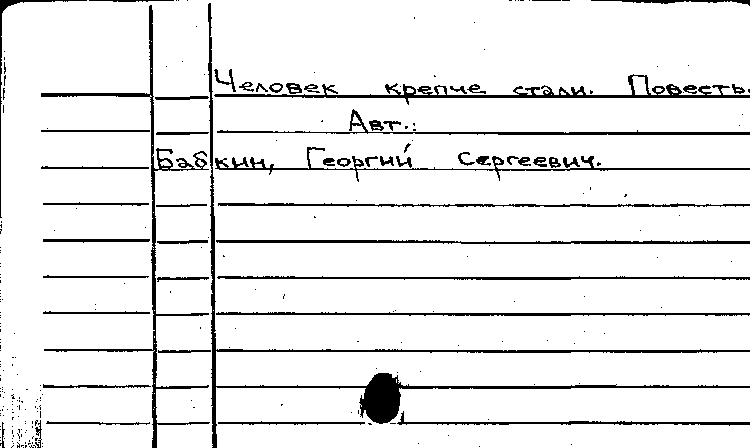 Человек крепче стали. Повесть.
Авт.:
Бабкин, Георгий Сергеевич.